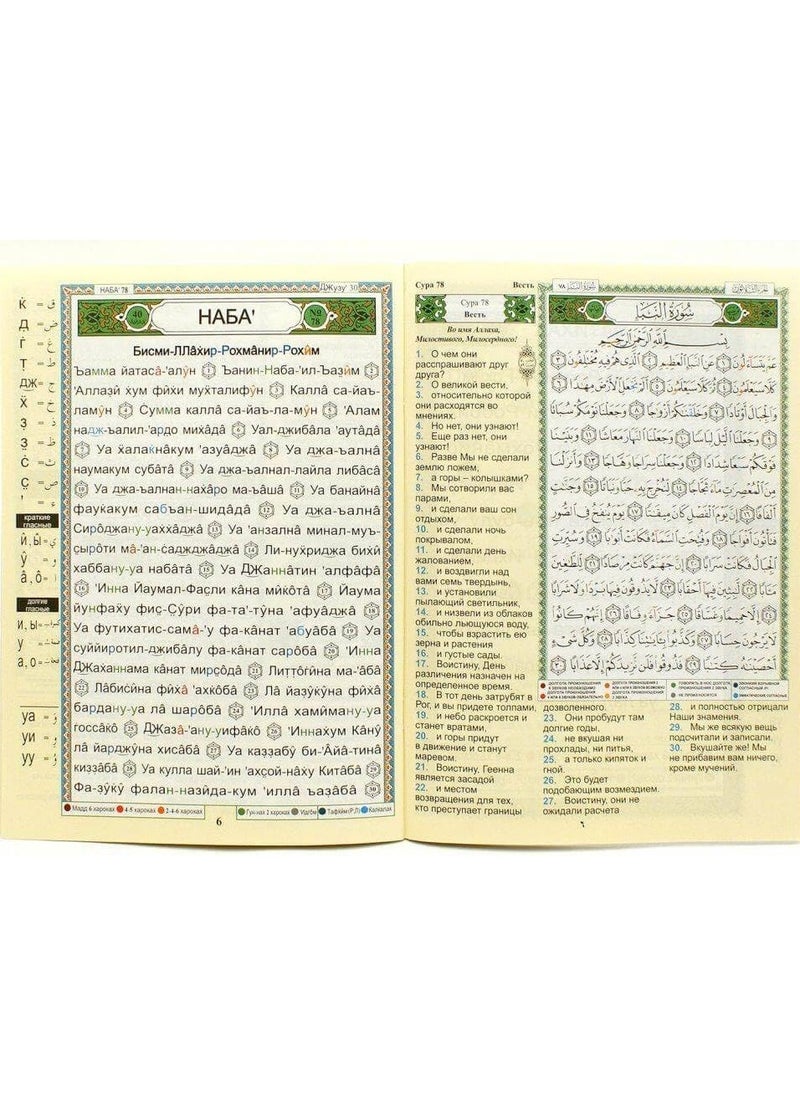 НАБА' 78
Джузу' 30
НАБА'
№ 78
Бисми-ЛЛа̂хир-Рохма̂нир-Рохӣм
Ъамма йатаса̂-'алӯн 1 Ъанин-Наба-'ил-Ъаẓӣм 2
'Аллаз̇ӣ хум фӣхи мухталифӯн 3 Калла̂ са-йаъ-
ламӯн 4 Сумма калла̂ са-йаъ-ла-мӯн 5 'Алам
надж-ъалил-'ардо миха̂да̂ 6 Уал-джиба̂ла 'аута̂да̂
7 Уа халакна̂кум 'азуа̂джа̂ 8 Уа джа-ъална̂
наумакум суба̂та̂ 9 Уа джа-ъалнал-лайла либа̂са̂
10 Уа джа-ъалнан-наха̂ро ма-ъа̂ша̂ 11 Уа банайна̂
фаукакум сабъан-шида̂да̂ 12 Уа джа-ъална̂
Сиро̂джану-уаххаджа̂ 13 Уа 'анзална̂ минал-муъ-
сыро̂ти ма̂-'ан-саджджа̂джа̂ 14 Ли-нухриджа бихӣ
хаббану-уа наба̂та̂ 15 Уа Джанна̂тин 'алфа̂фа̂
16 'Инна Йаумал-Фасли ка̂на мӣко̂та̂ 17 Йаума
йунфаху фис-Сӯри фа-та'-тӯна 'афуа̂джа̂ 18
Уа футихатис-сама̂-'у фа-ка̂нат 'абуа̂ба̂ 19 Уа
суййиротил-джиба̂лу фа-ка̂нат саро̂ба̂ 20 'Инна
Джаханнама ка̂нат мирсо̂да̂ 21 Литто̂гӣна ма-'а̂ба̂
22 Ла̂бисӣна фӣха̂ 'ахко̂ба̂ 23 Ла̂ йаз̇ӯкӯна фӣха̂
бардану-уа ла̂ шаро̂ба̂ 24 'Илла̂ хамӣману-уа
госса̂ко̂ 25 Джаза̂-'ану-уифа̂ко̂ 26 'Иннахум Ка̂нӯ
ла̂ йарджӯна хиса̂ба̂ 27 Уа каз̇з̇абу би-'А̂йа̂-тина̂
киз̇з̇а̂ба̂ 28 Уа кулла шай-ин 'ахсой-на̂ху Кита̂ба̂ 29
Фа-з̇ӯкӯ фалан-назӣда-кум 'илла̂ ъаз̇а̂ба̂ 30
Мадд 6 хароках 4-5 хароках 2-4-6 хароках
Гун-нах 2 харокаx Идгом Тафхим (Р,Л) Калкалах
6
краткие гласные
долгие гласные
уа = وَ
уи = وِ
уу = وُ
Сура 78 Весть
Сура 78
Весть
Во имя Аллаха,
Милостивого, Милосердного!
1. О чем они
расспрашивают друг
друга?
2. О великой вести,
3. относительно которой
они расходятся во
мнениях.
4. Но нет, они узнают!
5. Еще раз нет, они
узнают!
6. Разве Мы не сделали
землю ложем,
7. а горы – колышками?
8. Мы сотворили вас
парами,
9. и сделали ваш сон
отдыхом,
10. и сделали ночь
покрывалом,
11. и сделали день
жалованием,
12. и воздвигли над
вами семь твердынь,
13. и установили
пылающий светильник,
14. и низвели из облаков
обильно льющуюся воду,
15. чтобы взрастить ею
зерна и растения
16. и густые сады.
17. Воистину, День
различения назначен на
определенное время.
18. В тот день затрубят в
Рог, и вы придете толпами,
19. и небо раскроется и
станет вратами,
20. и горы придут
в движение и станут
маревом.
21. Воистину, Геенна
является засадой
22. и местом
возвращения для тех,
кто преступает границы
дозволенного.
23. Они пробудут там
долгие годы,
24. не вкушая ни
прохлады, ни питья,
25. а только кипяток и
гной.
26. Это будет
подобающим возмездием.
27. Воистину, они не
ожидали расчета
28. и полностью отрицали
Наши знамения.
29. Мы же всякую вещь
подсчитали и записали.
30. Вкушайте же! Мы
не прибавим вам ничего,
кроме мучений.
سُورَةُ النَّبَإِ ٧٨
سُورَةُ النَّبَإِ
بِسْمِ اللَّهِ الرَّحْمَٰنِ الرَّحِيمِ
عَمَّ يَتَسَاءَلُونَ ١ عَنِ النَّبَإِ الْعَظِيمِ ٢ الَّذِي هُمْ فِيهِ مُخْتَلِفُونَ ٣
كَلَّا سَيَعْلَمُونَ ٤ ثُمَّ كَلَّا سَيَعْلَمُونَ ٥ أَلَمْ نَجْعَلِ الْأَرْضَ مِهَادًا ٦
وَالْجِبَالَ أَوْتَادًا ٧ وَخَلَقْنَاكُمْ أَزْوَاجًا ٨ وَجَعَلْنَا نَوْمَكُمْ سُبَاتًا
٩ وَجَعَلْنَا اللَّيْلَ لِبَاسًا ١٠ وَجَعَلْنَا النَّهَارَ مَعَاشًا ١١ وَبَنَيْنَا
فَوْقَكُمْ سَبْعًا شِدَادًا ١٢ وَجَعَلْنَا سِرَاجًا وَهَّاجًا ١٣ وَأَنْزَلْنَا
مِنَ الْمُعْصِرَاتِ مَاءً ثَجَّاجًا ١٤ لِنُخْرِجَ بِهِ حَبًّا وَنَبَاتًا ١٥ وَجَنَّاتٍ
أَلْفَافًا ١٦ إِنَّ يَوْمَ الْفَصْلِ كَانَ مِيقَاتًا ١٧ يَوْمَ يُنْفَخُ فِي الصُّورِ
فَتَأْتُونَ أَفْوَاجًا ١٨ وَفُتِحَتِ السَّمَاءُ فَكَانَتْ أَبْوَابًا ١٩ وَسُيِّرَتِ
الْجِبَالُ فَكَانَتْ سَرَابًا ٢٠ إِنَّ جَهَنَّمَ كَانَتْ مِرْصَادًا ٢١ لِلطَّاغِينَ
مَآبًا ٢٢ لَابِثِينَ فِيهَا أَحْقَابًا ٢٣ لَا يَذُوقُونَ فِيهَا بَرْدًا وَلَا شَرَابًا
٢٤ إِلَّا حَمِيمًا وَغَسَّاقًا ٢٥ جَزَاءً وِفَاقًا ٢٦ إِنَّهُمْ كَانُوا
لَا يَرْجُونَ حِسَابًا ٢٧ وَكَذَّبُوا بِآيَاتِنَا كِذَّابًا ٢٨ وَكُلَّ شَيْءٍ
أَحْصَيْنَاهُ كِتَابًا ٢٩ فَذُوقُوا فَلَنْ نَزِيدَكُمْ إِلَّا عَذَابًا ٣٠
٦